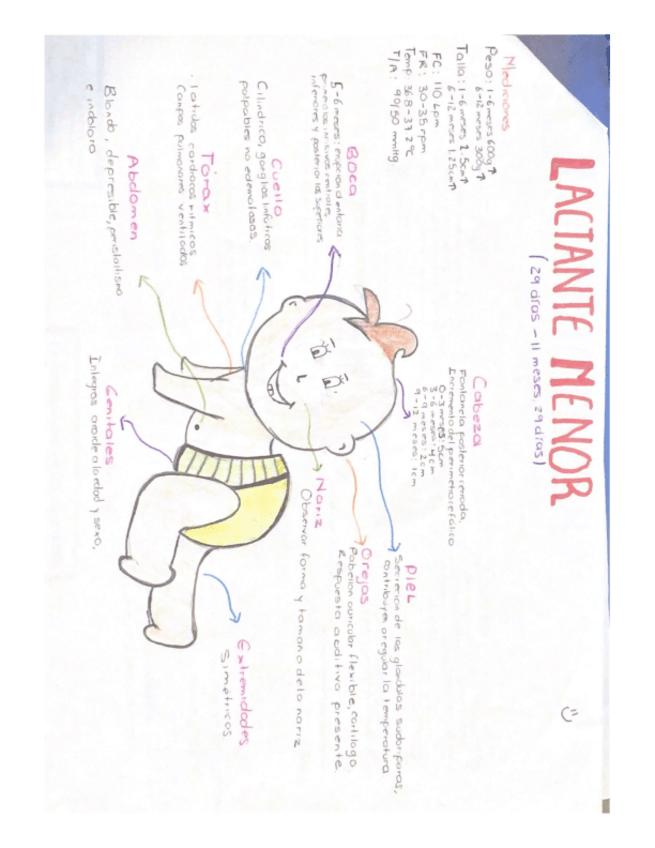 LACTANTE MENOR
(29 días - 11 meses, 29 días)
Mediciones
Peso: 1-6 meses 600g ↑
6-12 meses 300g ↑
Talla: 1-6 meses 2.5cm ↑
6-12 meses 1.25cm ↑
FC: 110 Lpm
FR: 30-35 rpm
Temp: 36.8-37.2°C
T/A: 90/50 mmHg
Cabeza
Fontanela posterior cerrada
Incremento del perímetro cefálico
0-3 meses: 5cm
3-6 meses: 4cm
6-9 meses: 2cm
9-12 meses: 1cm
Piel
Secreción de las glándulas sudoríparas,
contribuyen a regular la temperatura
Orejas
Pabellón auricular flexible, cartílago.
Respuesta auditiva presente.
Nariz
Observar forma y tamaño de la nariz
Boca
5-6 meses: erupción dentaria
primero los incisivos centrales
inferiores y posterior los superiores
Cuello
Cilíndrico, ganglios linfáticos
palpables no edematosos.
Tórax
. latidos cardiacos rítmicos
Campos pulmonares ventilados
Abdomen
Blando, depresible, peristaltismo
e indoloro
Genitales
Integros acorde a la edad y sexo.
Extremidades
Simétricos.